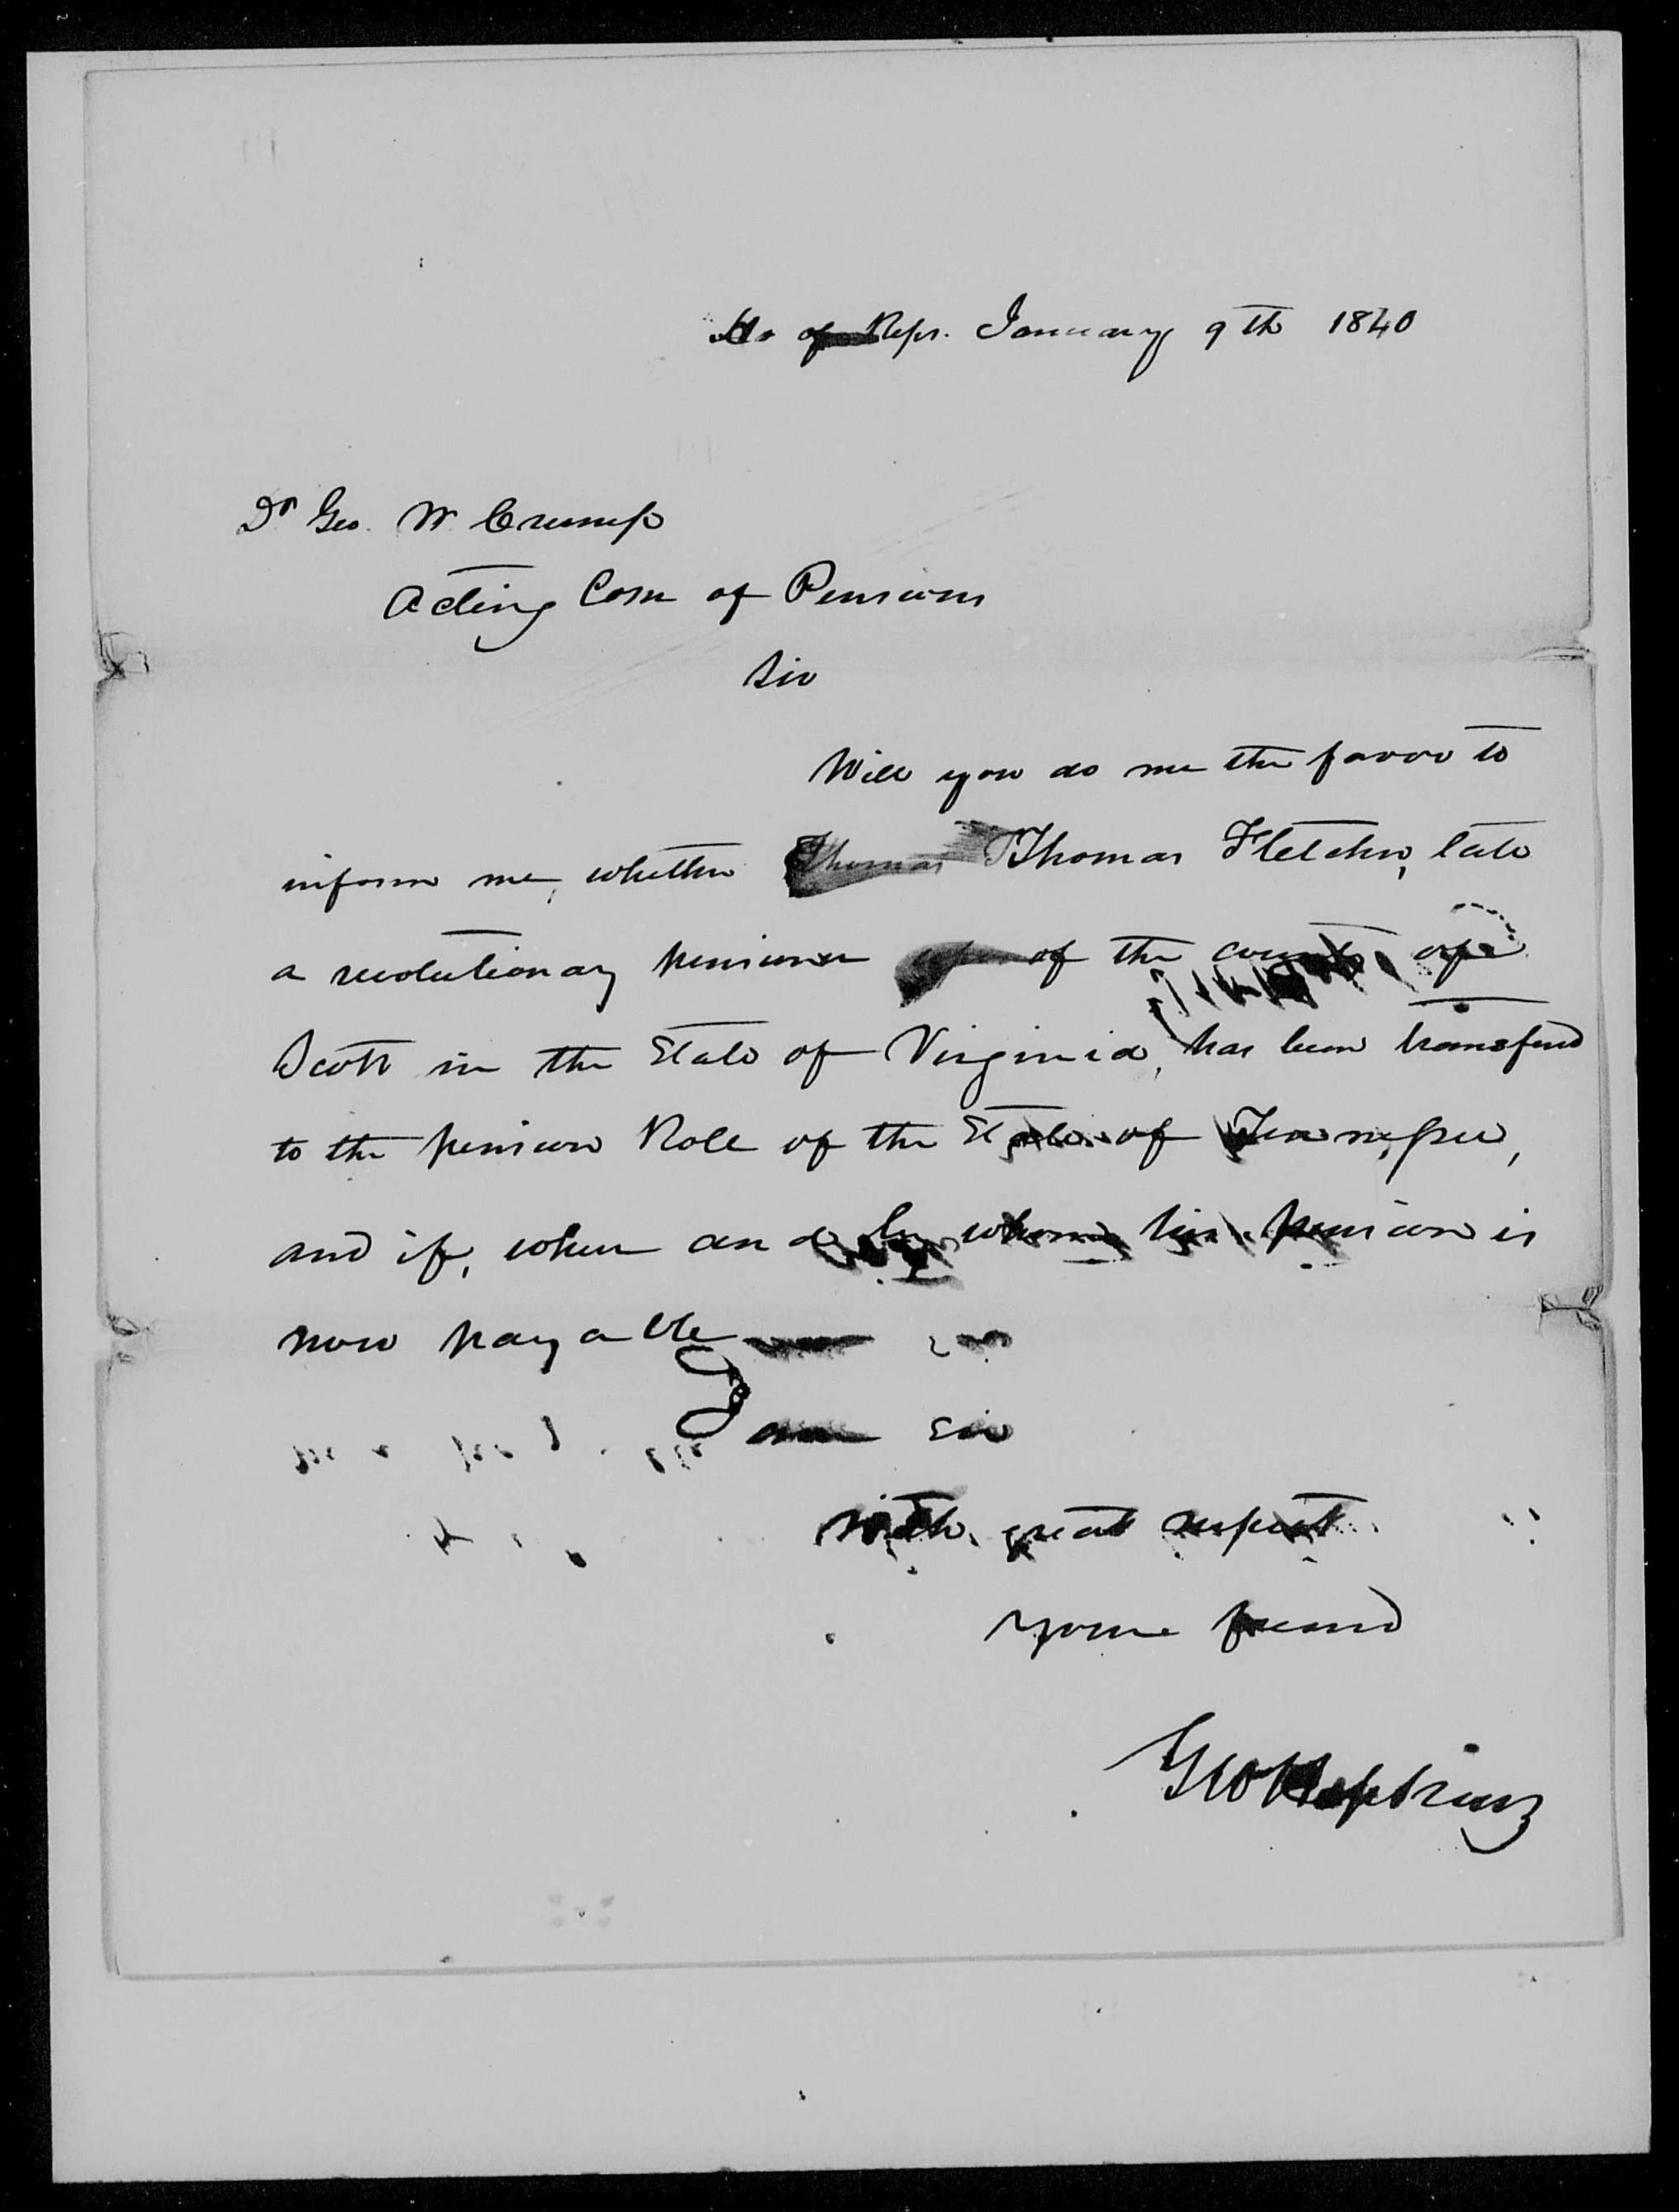 Ho of Repr. January 9th 1840
Dr Geo. W Crump
Acting Com of Pensions
Sir
Will you do me the favor to
inform me, whether Thomas Thomas Fletcher, late
a revolutionary pensioner of the county of
Scott in the State of Virginia, has been transfered
to the pension Role of the State of Tennessee,
and if, when and by whom his pension is
now payable
I am Sir
With great respect
your friend
GW Hopkins